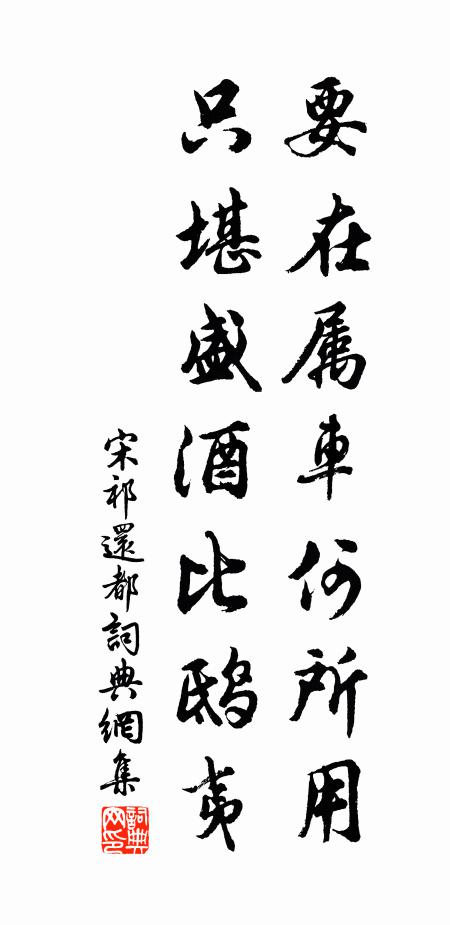 要在属車何所用
只堪盛酒比鸱夷
宋祁還都詞典網集
詞典网印